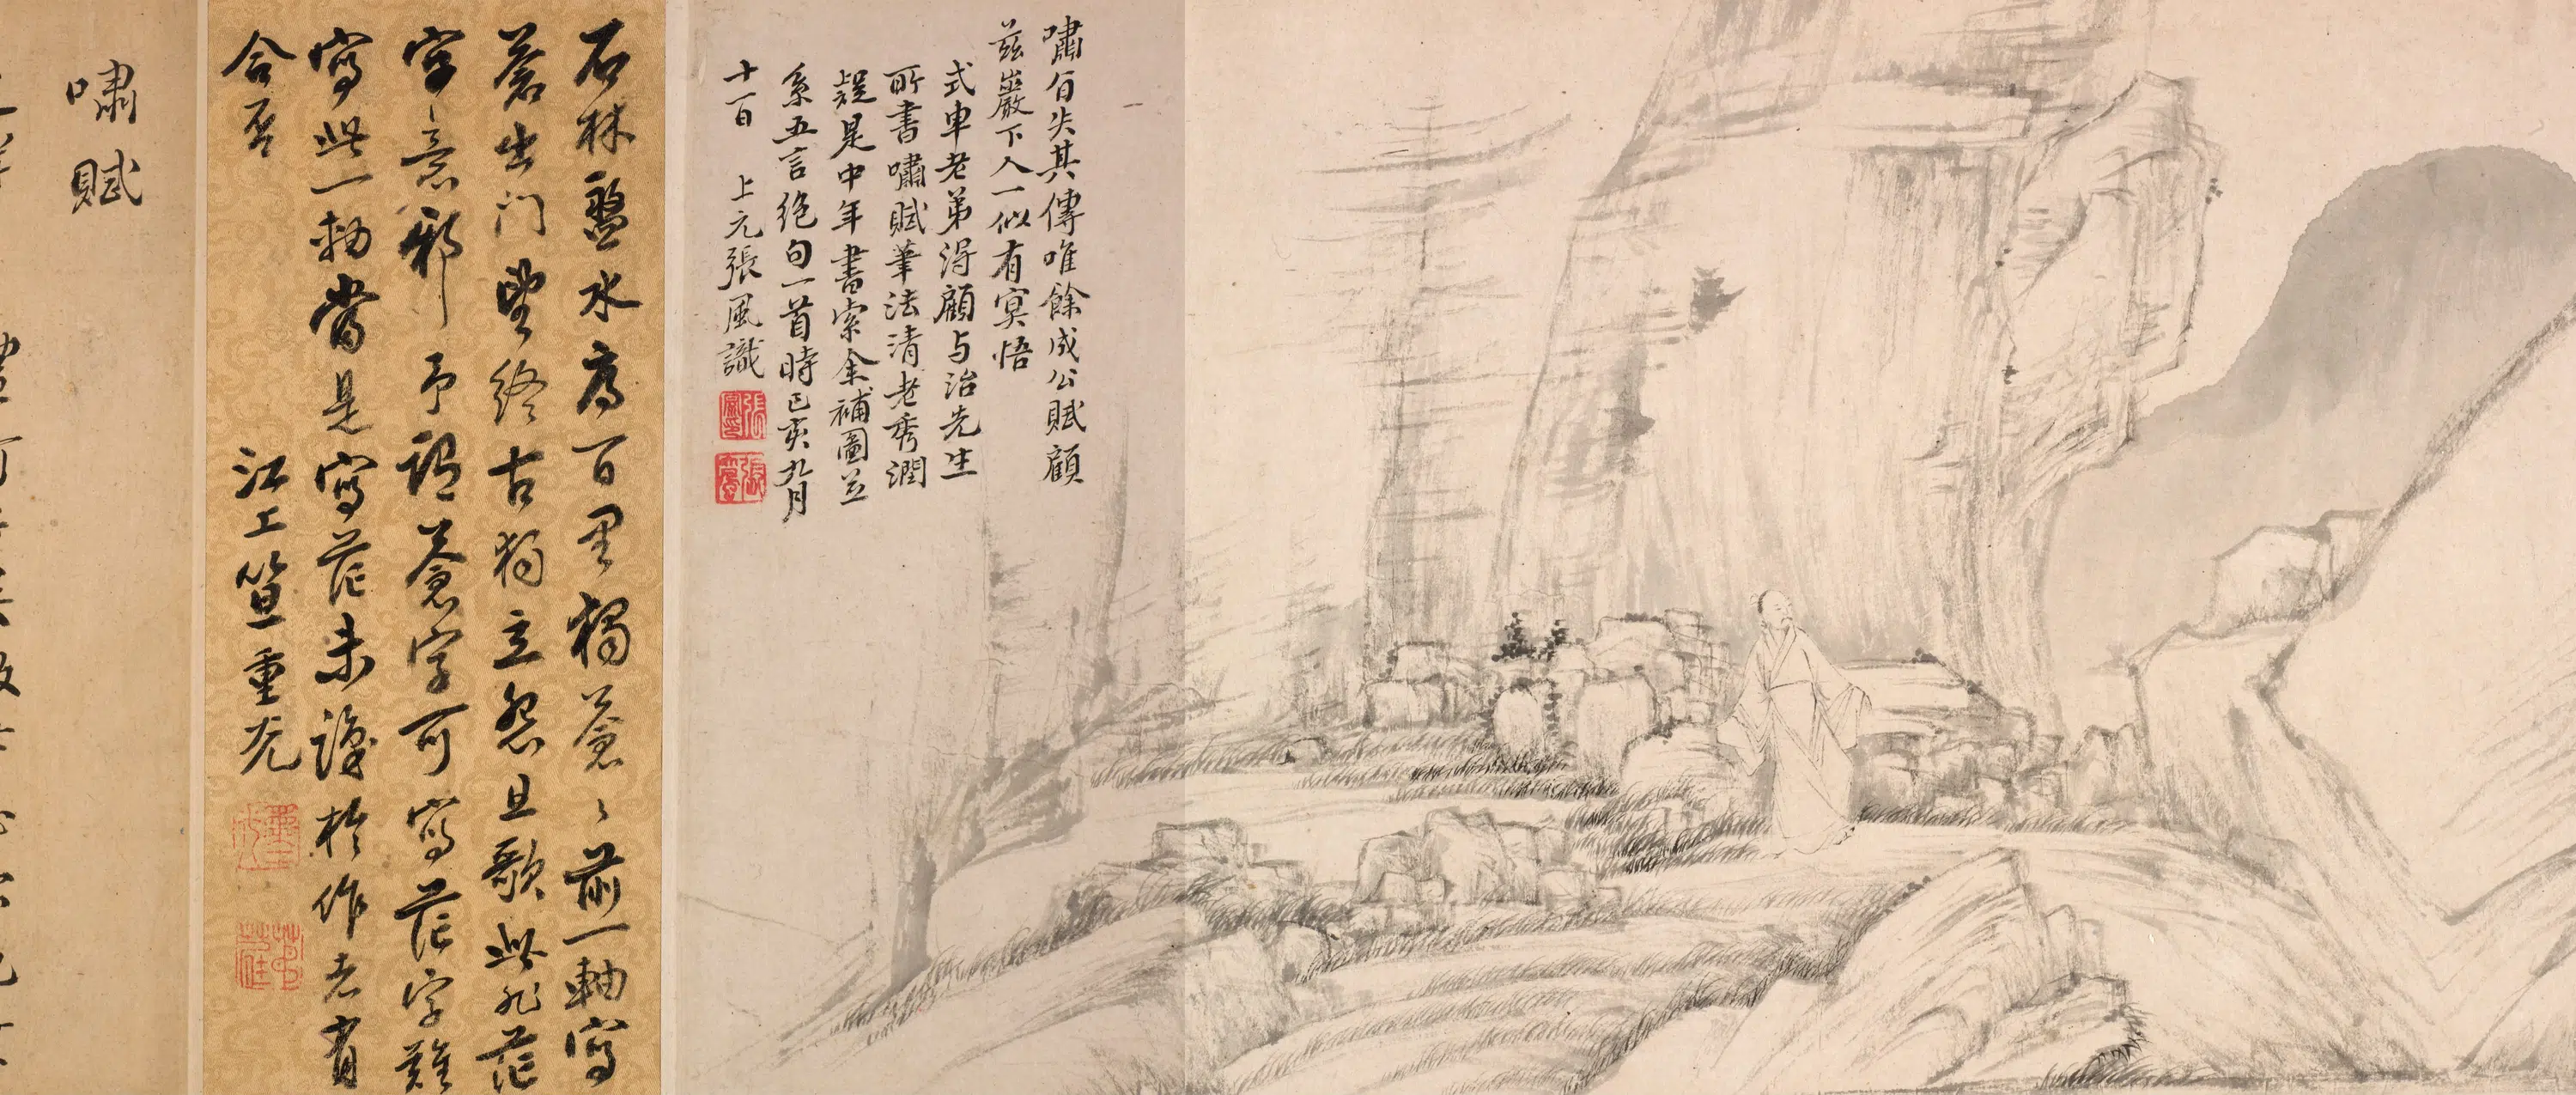 嘯旨失其傳唯餘成公賦顧
茲巖下人一似有冥悟
式車老弟得顧与治先生
所書嘯賦筆法清老秀潤
疑是中年書索余補圖並
系五言絕句一首時已亥九月
十一日 上元張風識
石林盤水高百里獨蒼〻前一軸寫
蒼出門望終古獨立怨且歌此非茫
字意邪予謂蒼字可寫茫字難
寫此一軸當是寫茫未識於作者有
合否
江上笪重光
嘯賦